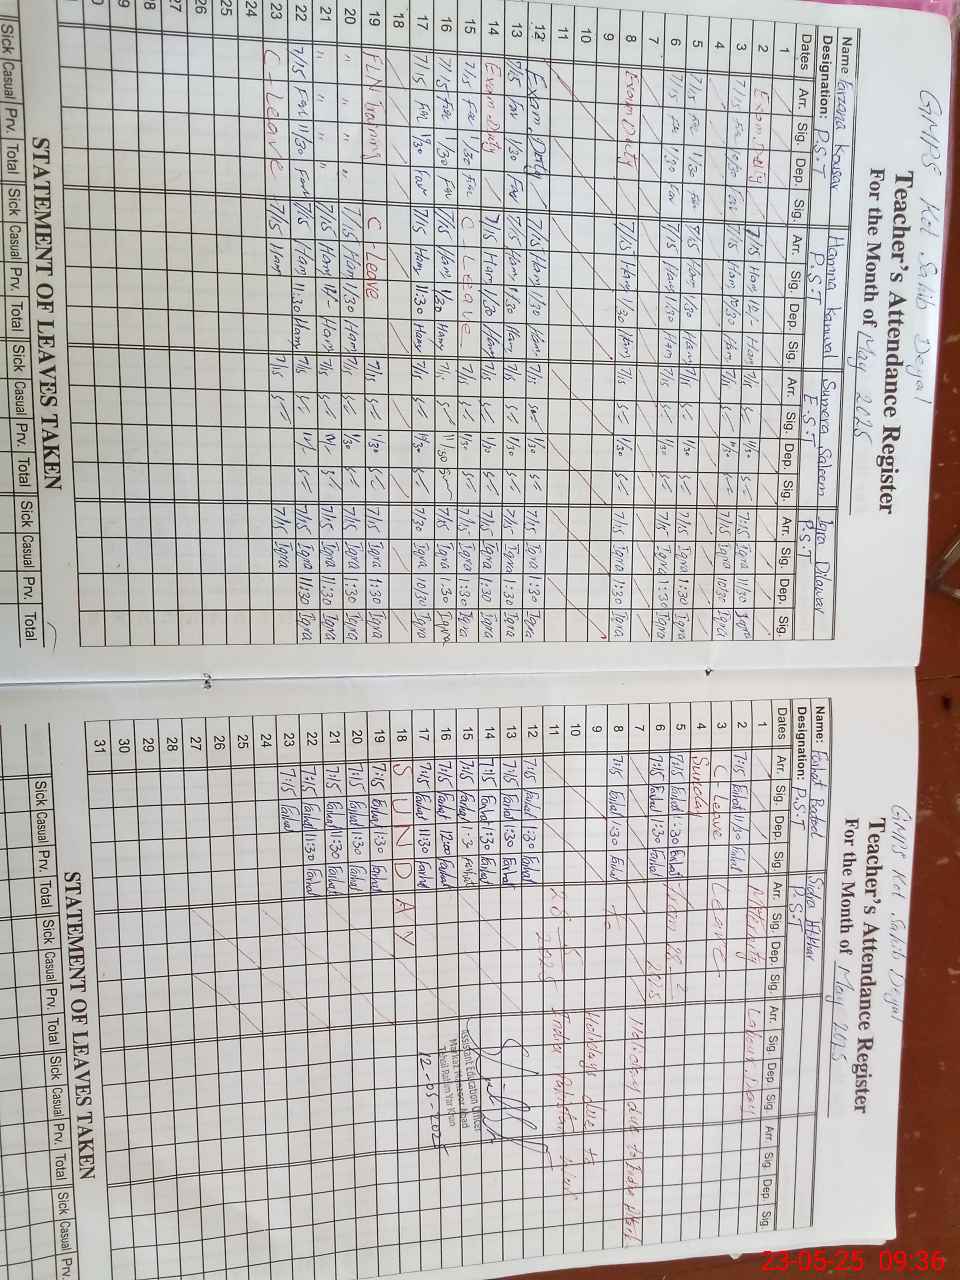 GMPS Kot Sahib Deyal
Teacher's Attendance Register
For the Month of May 2025
Name Farzana Kousar Hamna Kanwal Sumera Saleem Iqra Dilawar
Designation: P.S.T P.S.T E.S.T P.S.T
Dates Arr. Sig. Dep. Sig. Arr. Sig. Dep. Sig. Arr. Sig. Dep. Sig. Arr. Sig. Dep. Sig.
1
2 Exam Duty 7/15 Ham 12/- Ham 7/15 11/30 7:15 Iqra 11/30 Iqra
3 7/15 Far 10/30 Far 7/15 Ham 10/30 Ham 7/15 10/30 7/15 Iqra 10/30 Iqra
4
5 7/15 Far 1/30 Far 7/15 Ham 1/30 Ham 7/15 1/30 7/15 Iqra 1:30 Iqra
6 7/15 Far 1/30 Far 7/15 Ham 1/30 Ham 7/15 1/30 7/15 Iqra 1:30 Iqra
7
8 Exam Duty 7/15 Ham 1/30 Ham 7/15 1/30 7/15 Iqra 1:30 Iqra
9
10
11
12 Exam Duty 7/15 Ham 1/30 Ham 7/15 1/30 7/15 Iqra 1:30 Iqra
13 7/15 Far 1/30 Far 7/15 Ham 1/30 Ham 7/15 1/30 7/15 Iqra 1:30 Iqra
14 Exam Duty 7/15 Ham 1/30 Ham 7/15 1/30 7/15 Iqra 1:30 Iqra
15 7/15 Far 1/30 Far C - Leave 7/15 1/30 7/15 Iqra 1:30 Iqra
16 7/15 Far 1/30 Far 7/15 Ham 1/30 Ham 7/15 11/30 7/15 Iqra 1:30 Iqra
17 7/15 Far 11/30 Far 7/15 Ham 11:30 Ham 7/15 11/30 7/30 Iqra 10/30 Iqra
18
19 FLN Training C - Leave 7/15 1/30 7/15 Iqra 1:30 Iqra
20 " " " " 7/15 Ham 1/30 Ham 7/15 1/30 7/15 Iqra 1:30 Iqra
21 " " " " 7/15 Ham 12/- Ham 7/15 12/- 7/15 Iqra 11:30 Iqra
22 7/15 Far 11/30 Far 7/15 Ham 11:30 Ham 7/15 12/- 7/15 Iqra 11:30 Iqra
23 C - Leave 7/15 Ham 7/15 7/15 Iqra
24
25
26
27
28
29
STATEMENT OF LEAVES TAKEN
Sick Casual Prv. Total Sick Casual Prv. Total Sick Casual Prv. Total Sick Casual Prv. Total
GMPS Kot Sahib Deyal
Teacher's Attendance Register
For the Month of May 2025
Name: Farhat Sidra Iftkhar
Designation: P.S.T P.S.T
Dates Arr. Sig. Dep. Sig. Arr. Sig. Dep. Sig. Arr. Sig. Dep. Sig. Arr. Sig. Dep. Sig.
1 Labour Day
2 7:15 Farhat 11/30 Farhat Maternity
3 C - Leave Leave
4 Sunday
5 7:15 Farhat 1:30 Farhat From 28-2-
6 7:15 Farhat 1:30 Farhat 2025
7 Holiday due to
8 7:15 Farhat 1:30 Farhat To
9 Holidays due to
10 India Pakistan War
11 28-5-2025
12 7:15 Farhat 1:30 Farhat
13 7:15 Farhat 1:30 Farhat
14 7:15 Farhat 1:30 Farhat
15 7:15 Farhat 1:30 Farhat
16 7:15 Farhat 12:00 Farhat
17 7:15 Farhat 11:30 Farhat
18 SUNDAY
19 7:15 Farhat 1:30 Farhat
20 7:15 Farhat 11:30 Farhat
21 7:15 Farhat 11:30 Farhat
22 7:15 Farhat 11:30 Farhat
23 7:15 Farhat
24
25
26
27
28
29
30
31
Assistant Education Officer
Markaz Road
Tehsil Rahim Yar Khan
12-05-2025
STATEMENT OF LEAVES TAKEN
Sick Casual Prv. Total Sick Casual Prv. Total Sick Casual Prv. Total Sick Casual Prv.
23-05-25 09:36